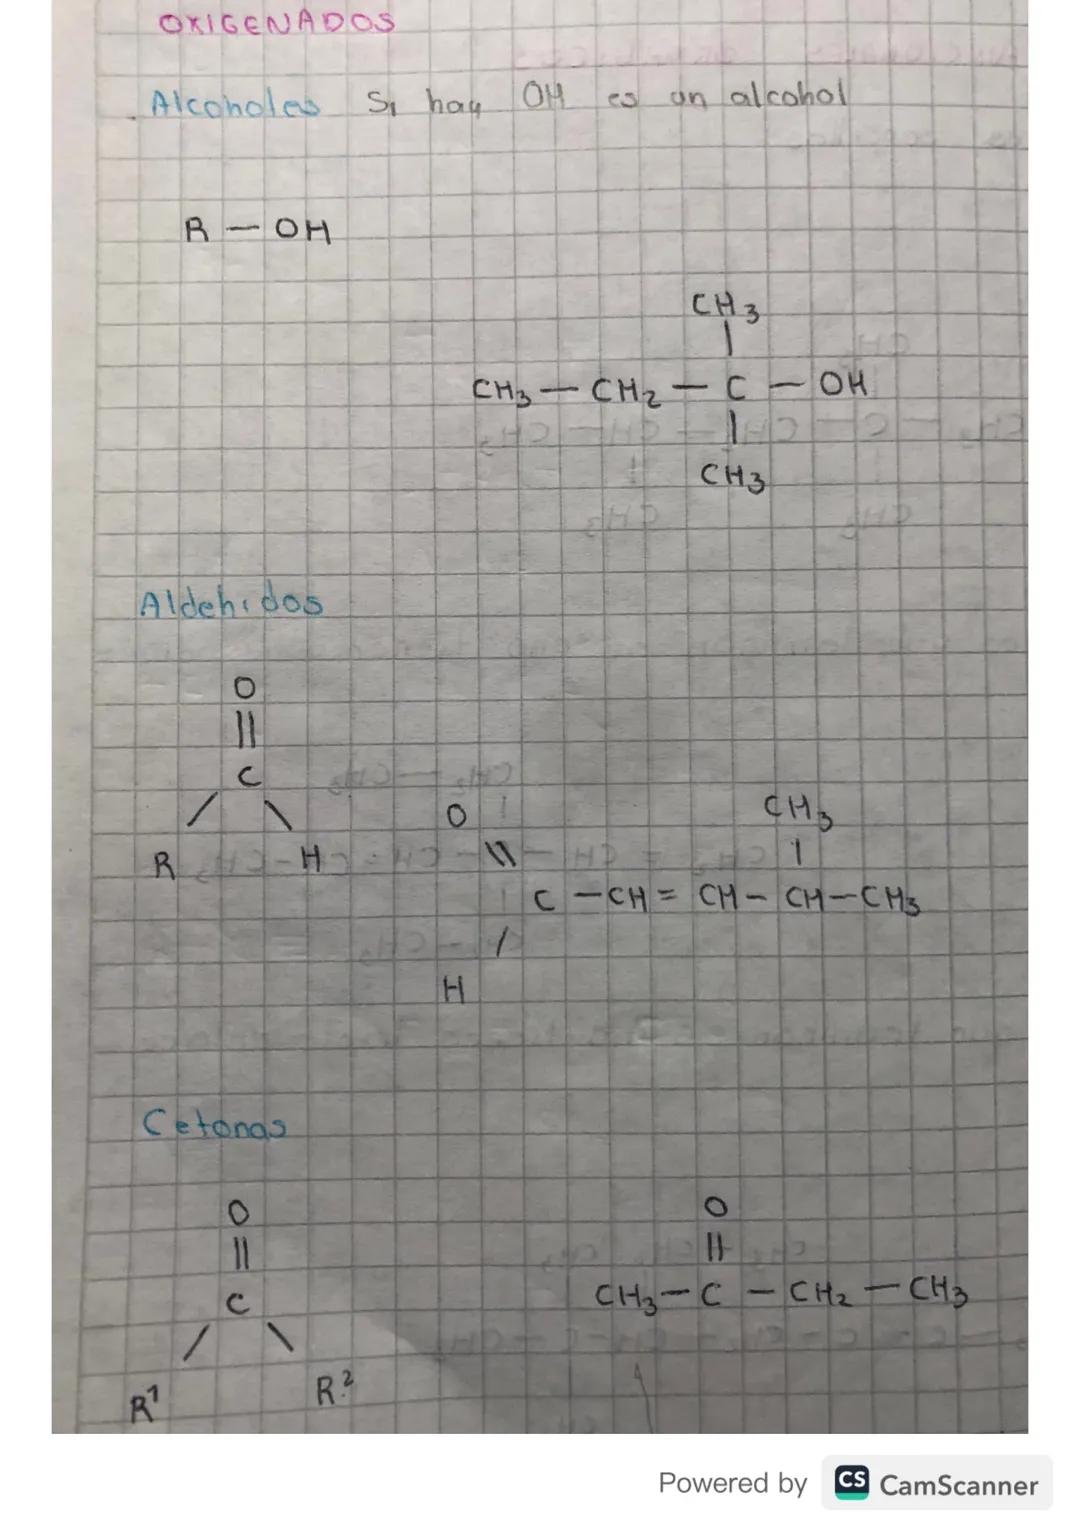 OXIGENADOS
Alcoholes Si hay OH es un alcohol
R — OH
CH3
|
CH3 — CH2 — C — OH
|
CH3
Aldehidos
O
||
C
/ \
R H
O CH3
\\ |
C - CH = CH - CH - CH3
/
H
Cetonas
O
||
C
/ \
R1 R2
O
||
CH3 - C - CH2 - CH3
Powered by CS CamScanner